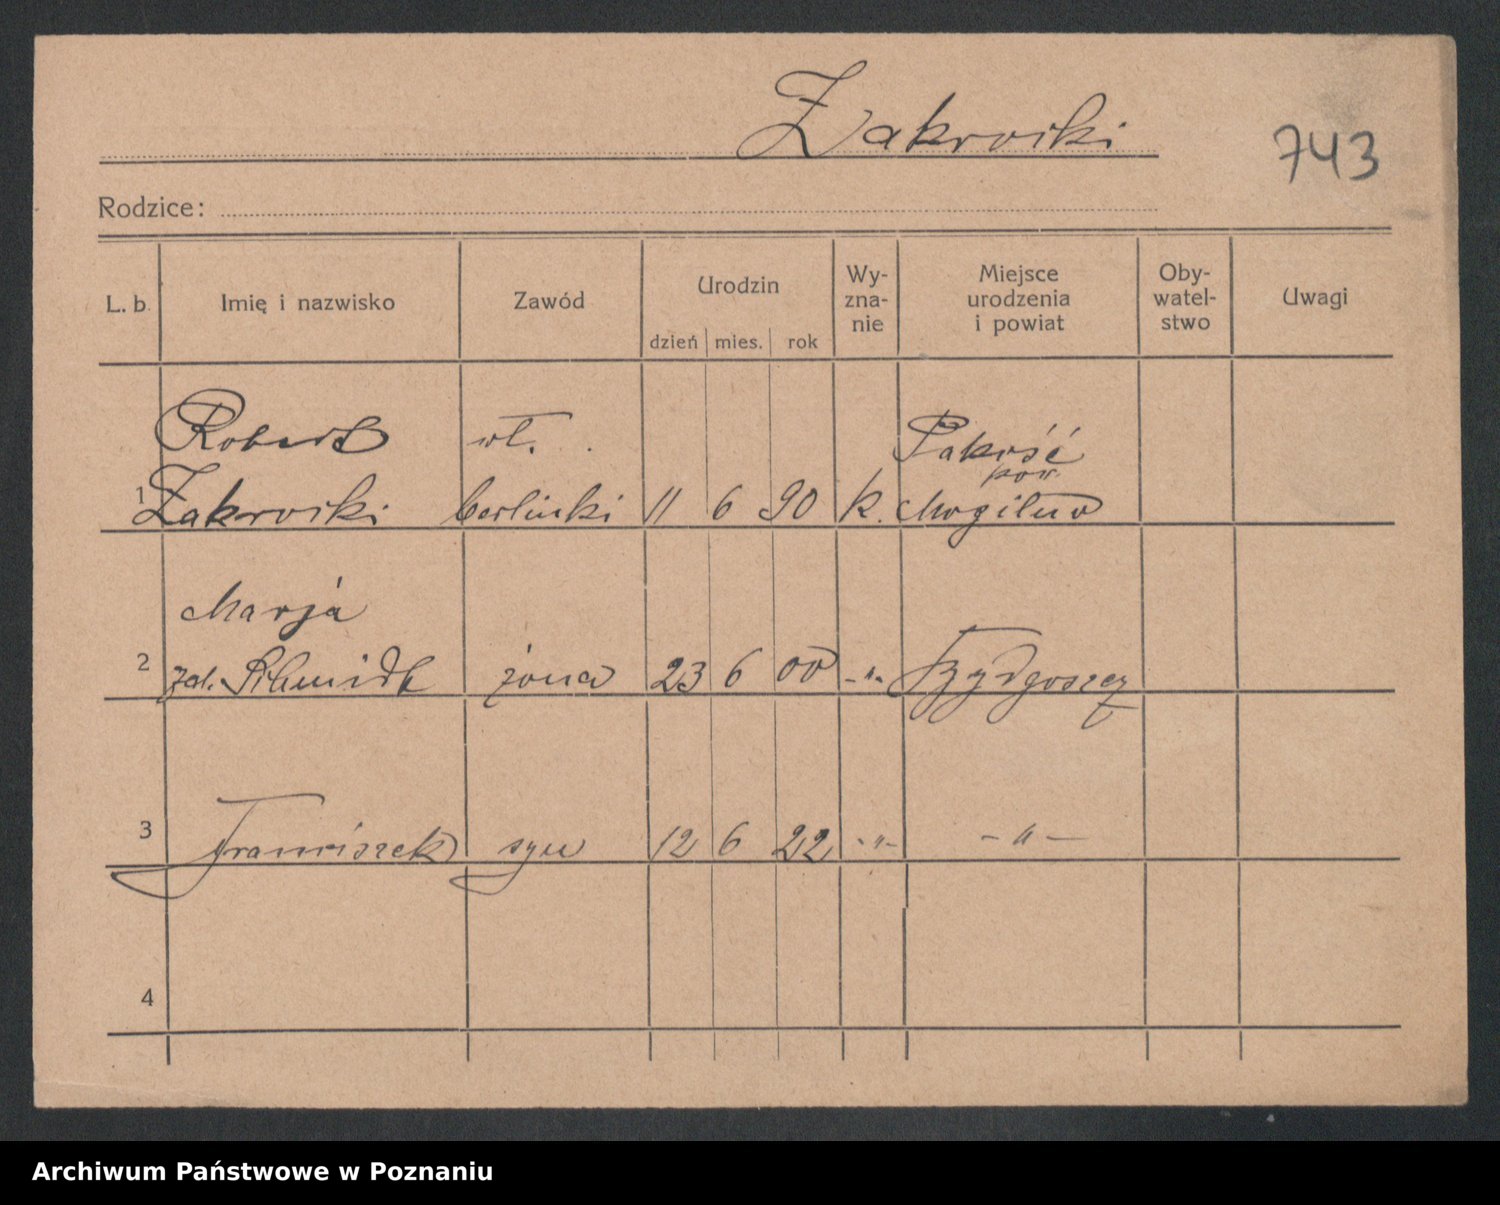 Zakroiki
743
Rodzice:
L. b. Imię i nazwisko Zawód Urodzin dzień mies. rok Wy-zna-nie Miejsce urodzenia i powiat Oby-watel-stwo Uwagi
Robert wł. Pakość
pow.
1 Zakroiki berlinki 11 6 90 k. Mogilno
Marja
2 zd. Schmidt żona 23 6 00 -"- Bydgoszcz
3 Franciszek syn 12 6 22 -"- -"-
4
Archiwum Państwowe w Poznaniu